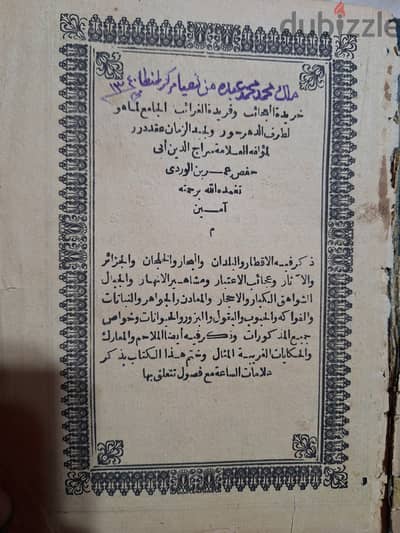 dubizzle
ملك محمد محمد عبده من نصيا مركز طنطا ١٣٤٠
خريدة العجائب وفريدة الغرائب الجامع لما هو
لطرف الدهر حور ولجيد الزمان عقد درر
لمؤلفه العلامة سراج الدين أبى
حفص عمر بن الوردى
تغمده الله برحمته
آمين
م
ذكر فيه الاقطار والبلدان والبحار والخلجان والجزائر
والآثار وعجائب الاعتبار ومشاهير الانهار والجبال
الشواهق الكبار والاحجار والمعادن والجواهر والنباتات
والفواكه والحبوب والبقول والبزور والحيوانات وخواص
جميع المذكورات وذكر فيه أيضا الملاحم والمعارك
والحكايات الغريبة المثال وختم هذا الكتاب بذكر
علامات الساعة مع فصول تتعلق بها